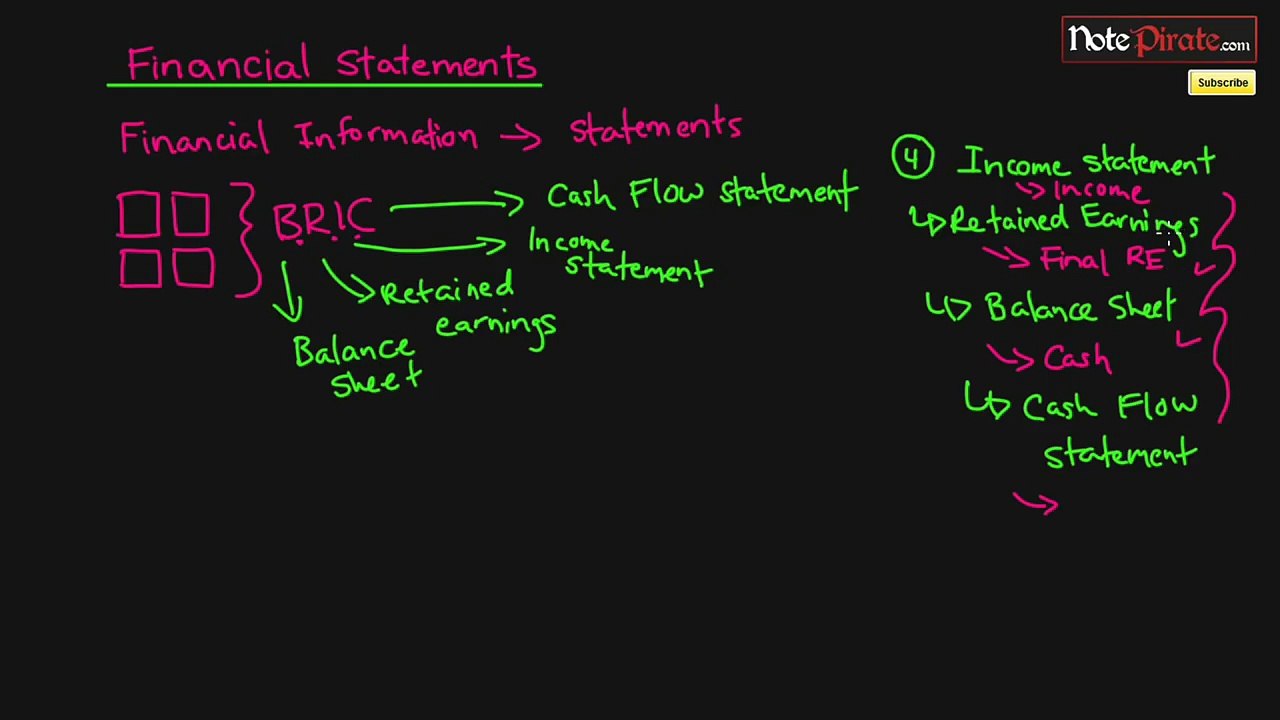 NotePirate.com
Subscribe
Financial Statements
Financial Information → statements
BRIC
Cash Flow statement
Income
statement
Retained
earnings
Balance
sheet
4 Income statement
Income
Retained Earnings
Final RE
Balance Sheet
Cash
Cash Flow
statement